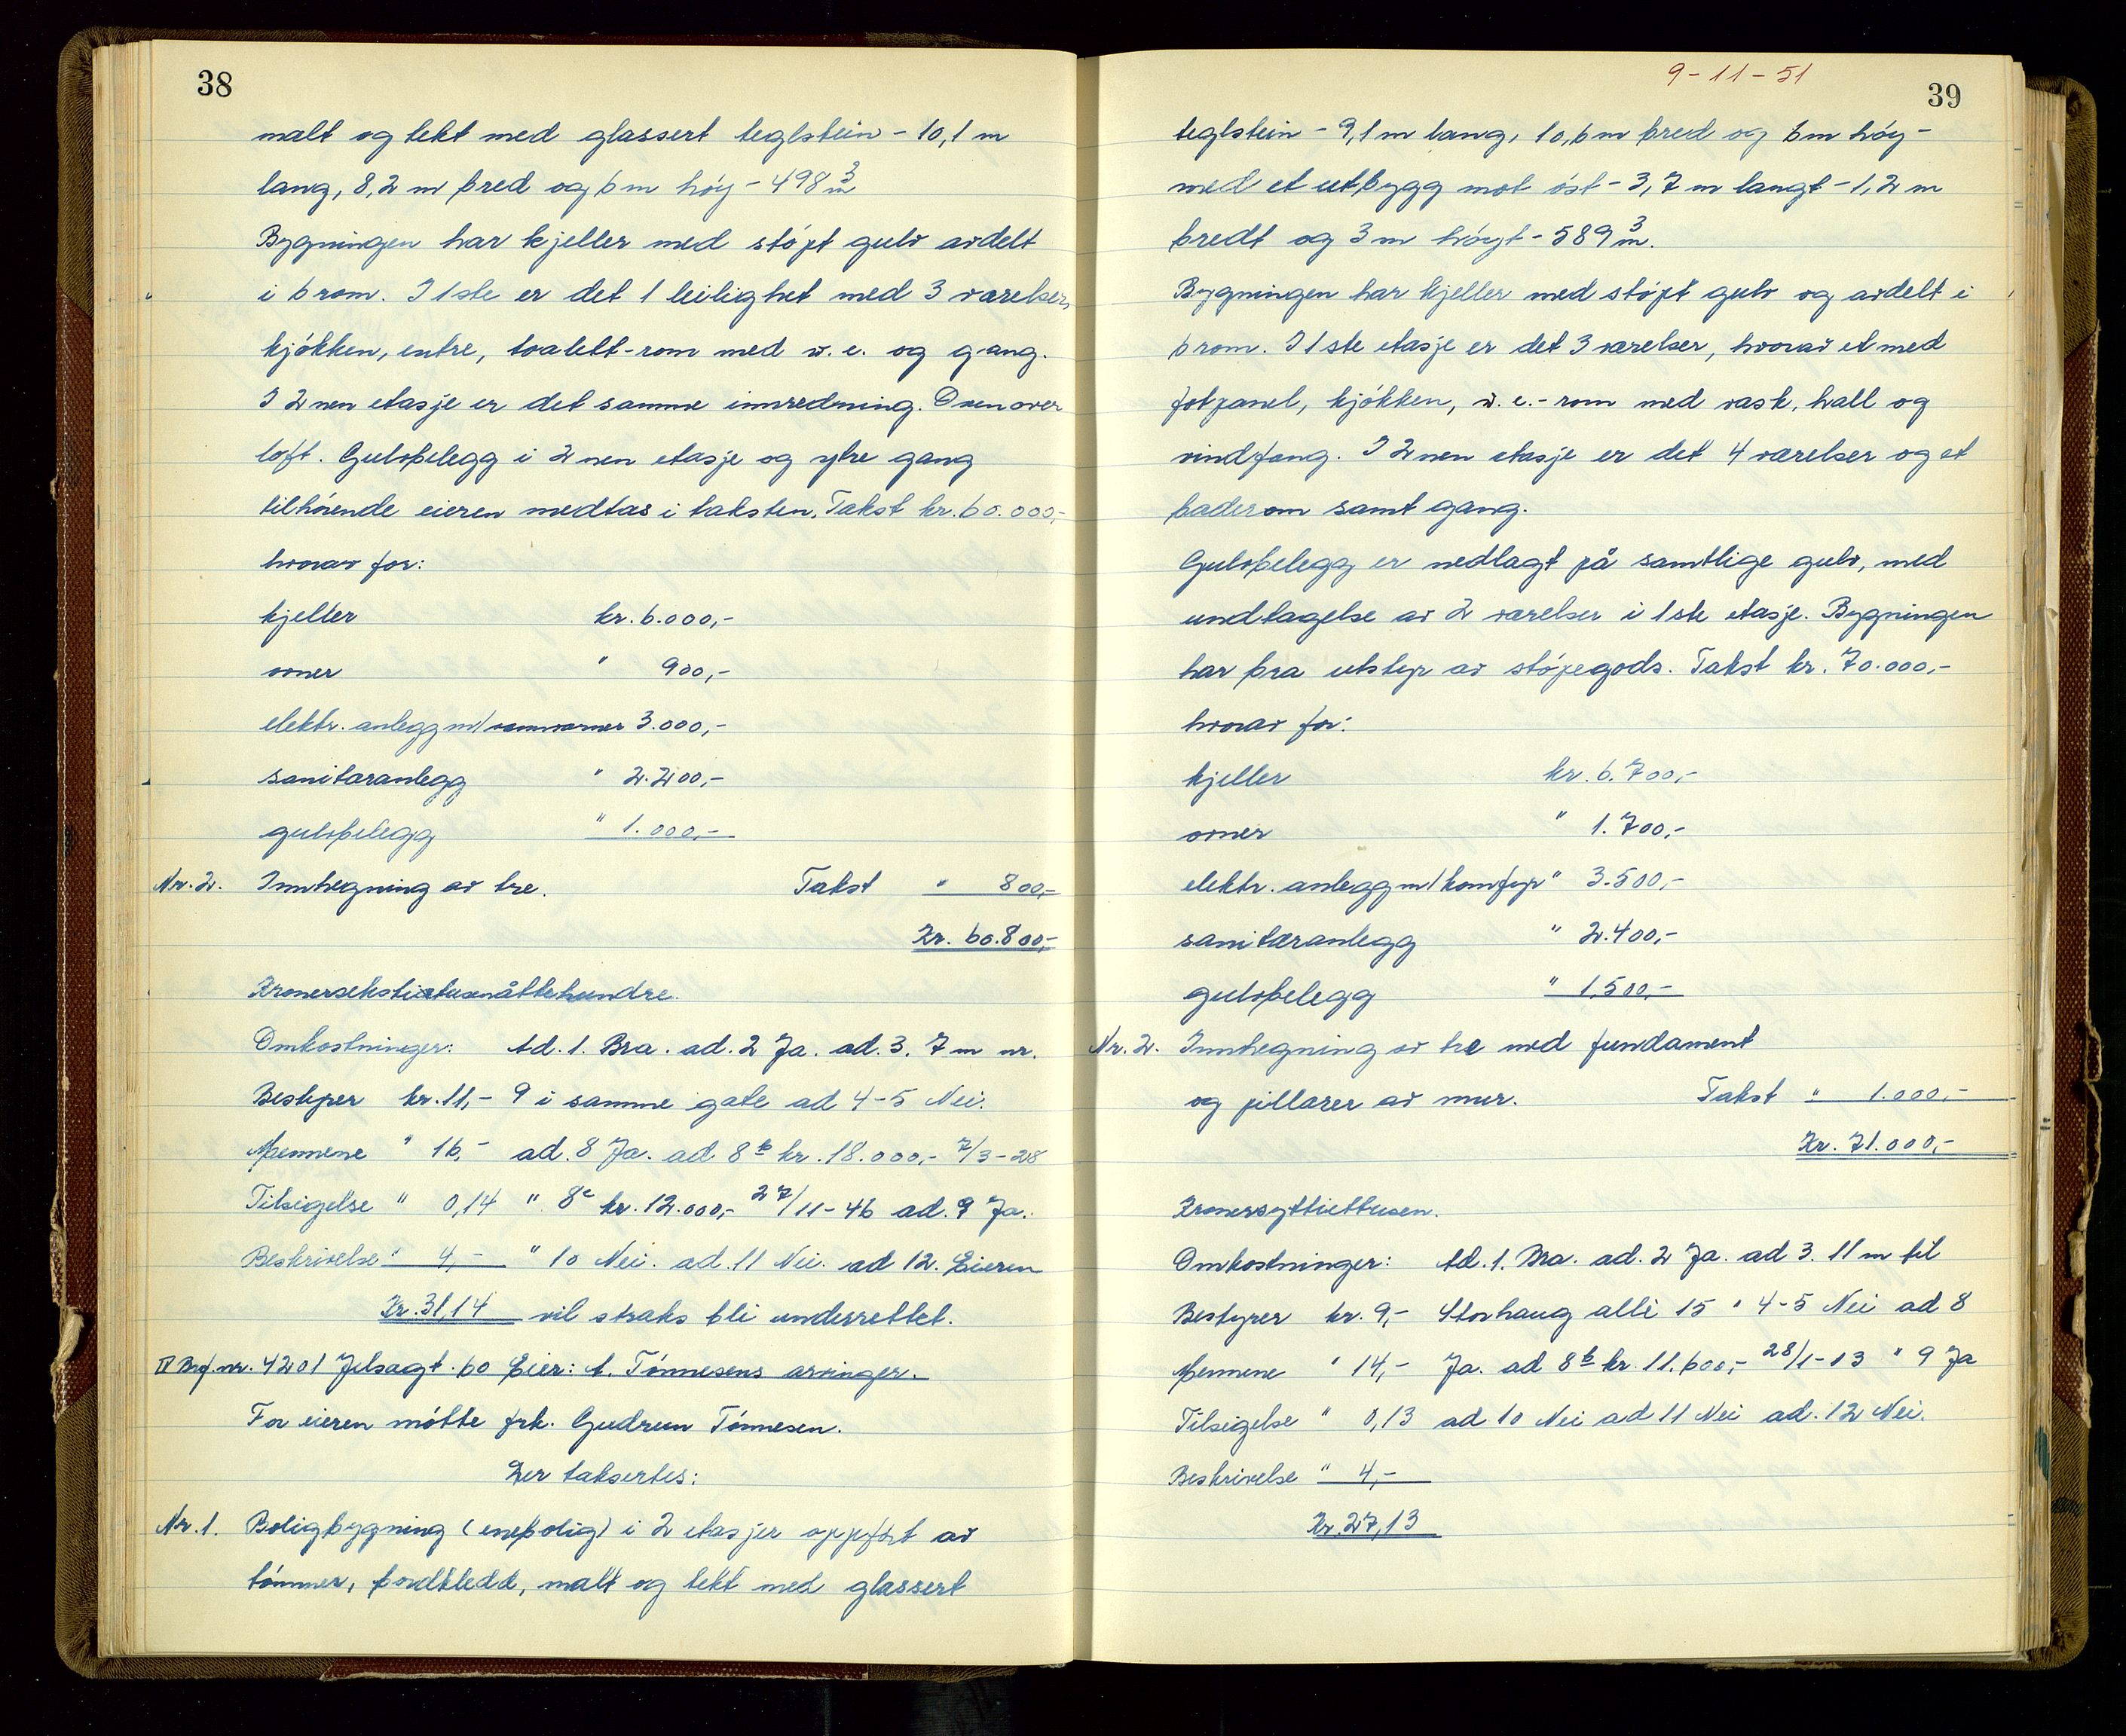 38
malt og tekt med glassert teglstein - 10,1 m
lang, 8,2 m bred og 6 m høy - 498 m³
Bygningen har kjeller med støpt gulv avdelt
i 6 rom. I 1ste er det 1 leilighet med 3 værelser,
kjøkken, entre, toalett-rom med w.c. og gang.
I 2nen etasje er det samme innredning. Ovenover
loft. Gulvbelegg i 2nen etasje og ytre gang
tilhørende eieren medtas i taksten. Takst kr. 60.000,-
hvorav for:
kjeller kr. 6.000,-
ovner " 900,-
elektr. anlegg m/ 3.000,-
sanitæranlegg " 2.200,-
gulvbelegg " 1.000,-
Nr. 2. Innhegning av tre. Takst " 800,-
Kr. 60.800,-
Kronersekstitusenåttehundre.
Omkostninger: Ad. 1. Bra. ad. 2 Ja. ad. 3. 7 m nr.
Bestyrer kr. 11,- 9 i samme gate ad 4-5 Nei.
Mennene " 16,- ad. 8 Ja. ad 8b kr. 18.000,- 7/3-28
Tilsigelse " 0,14 " 8c kr. 12.000,- 27/11-46 ad. 9 Ja.
Beskrivelse " 4,- " 10 Nei. ad. 11 Nei. ad 12. Eieren
Kr. 31,14 vil straks bli underrettet.
IV Brf. nr. 4201 Jelsagt. 60 Eier: A. Tønnesens arvinger.
For eieren møtte frk. Gudrun Tønnesen.
Der taksertes:
Nr. 1. Boligbygning (enebolig) i 2 etasjer oppført av
tømmer, bordkledd, malt og tekt med glassert
9-11-51
39
teglstein - 9,1 m lang, 10,6 m bred og 6 m høy -
med et utbygg mot øst - 3,7 m langt - 1,2 m
bredt og 3 m høyt - 589 m³.
Bygningen har kjeller med støpt gulv og avdelt i
6 rom. I 1ste etasje er det 3 værelser, hvorav et med
fotpanel, kjøkken, w.c.-rom med vask, hall og
vindfang. I 2nen etasje er det 4 værelser og et
baderom samt gang.
Gulvbelegg er nedlagt på samtlige gulv, med
undtagelse av 2 værelser i 1ste etasje. Bygningen
har bra utstyr av støpegods. Takst kr. 70.000,-
hvorav for:
kjeller kr. 6.700,-
ovner " 1.700,-
elektr. anlegg m/ komfyr " 3.500,-
sanitæranlegg " 2.400,-
gulvbelegg " 1,500,-
Nr. 2. Innhegning av tre med fundament
og pillarer av mur. Takst " 1.000,-
Kr. 71.000,-
Kronersyttiettusen.
Omkostninger: Ad. 1. Bra. ad. 2 Ja. ad 3. 11 m til
Bestyrer kr. 9,- Storhaug allé 15 " 4-5 Nei ad 8
Mennene " 14,- Ja. ad 8b kr. 11.600,- 28/1-13 " 9 Ja
Tilsigelse " 0,13 ad 10 Nei ad 11 Nei ad. 12 Nei.
Beskrivelse " 4,-
Kr. 27,13